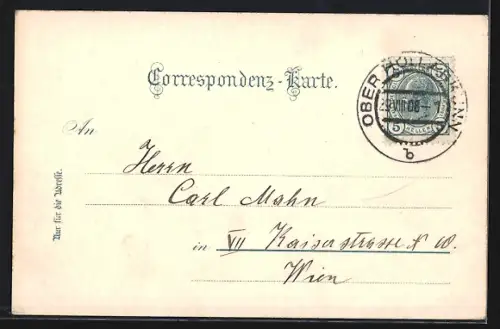 Correspondenz-Karte.
OBER HOLLABRUNN
VIII 06
b
5 HELLER 5
An
Herrn
Carl Mahn
in VII Kaiserstrasse №
Wien
Nur für die Adresse.